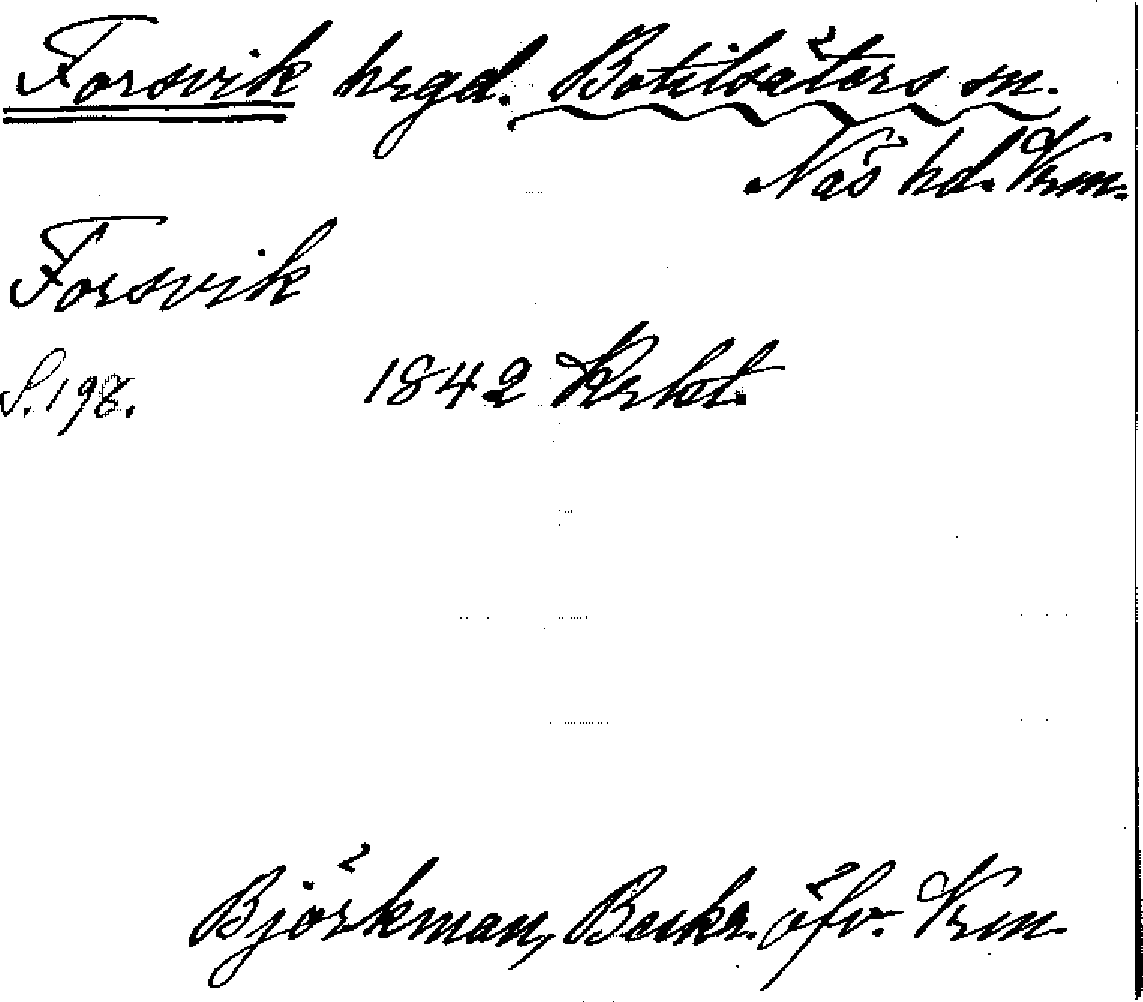 Forsvik hrgd. Botilsäters sn.
Näs hd. Vrm.
Forsvik
S. 198. 1842 Krkt.
Björkman, Beskr. öfv. Vrm.